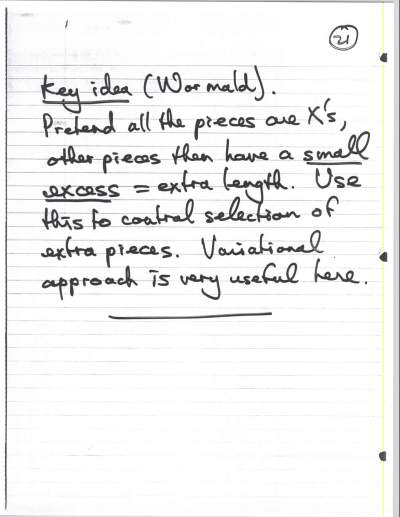 21
Key idea (Wormald).
Pretend all the pieces are X's,
other pieces then have a small
excess = extra length. Use
this to control selection of
extra pieces. Variational
approach is very useful here.